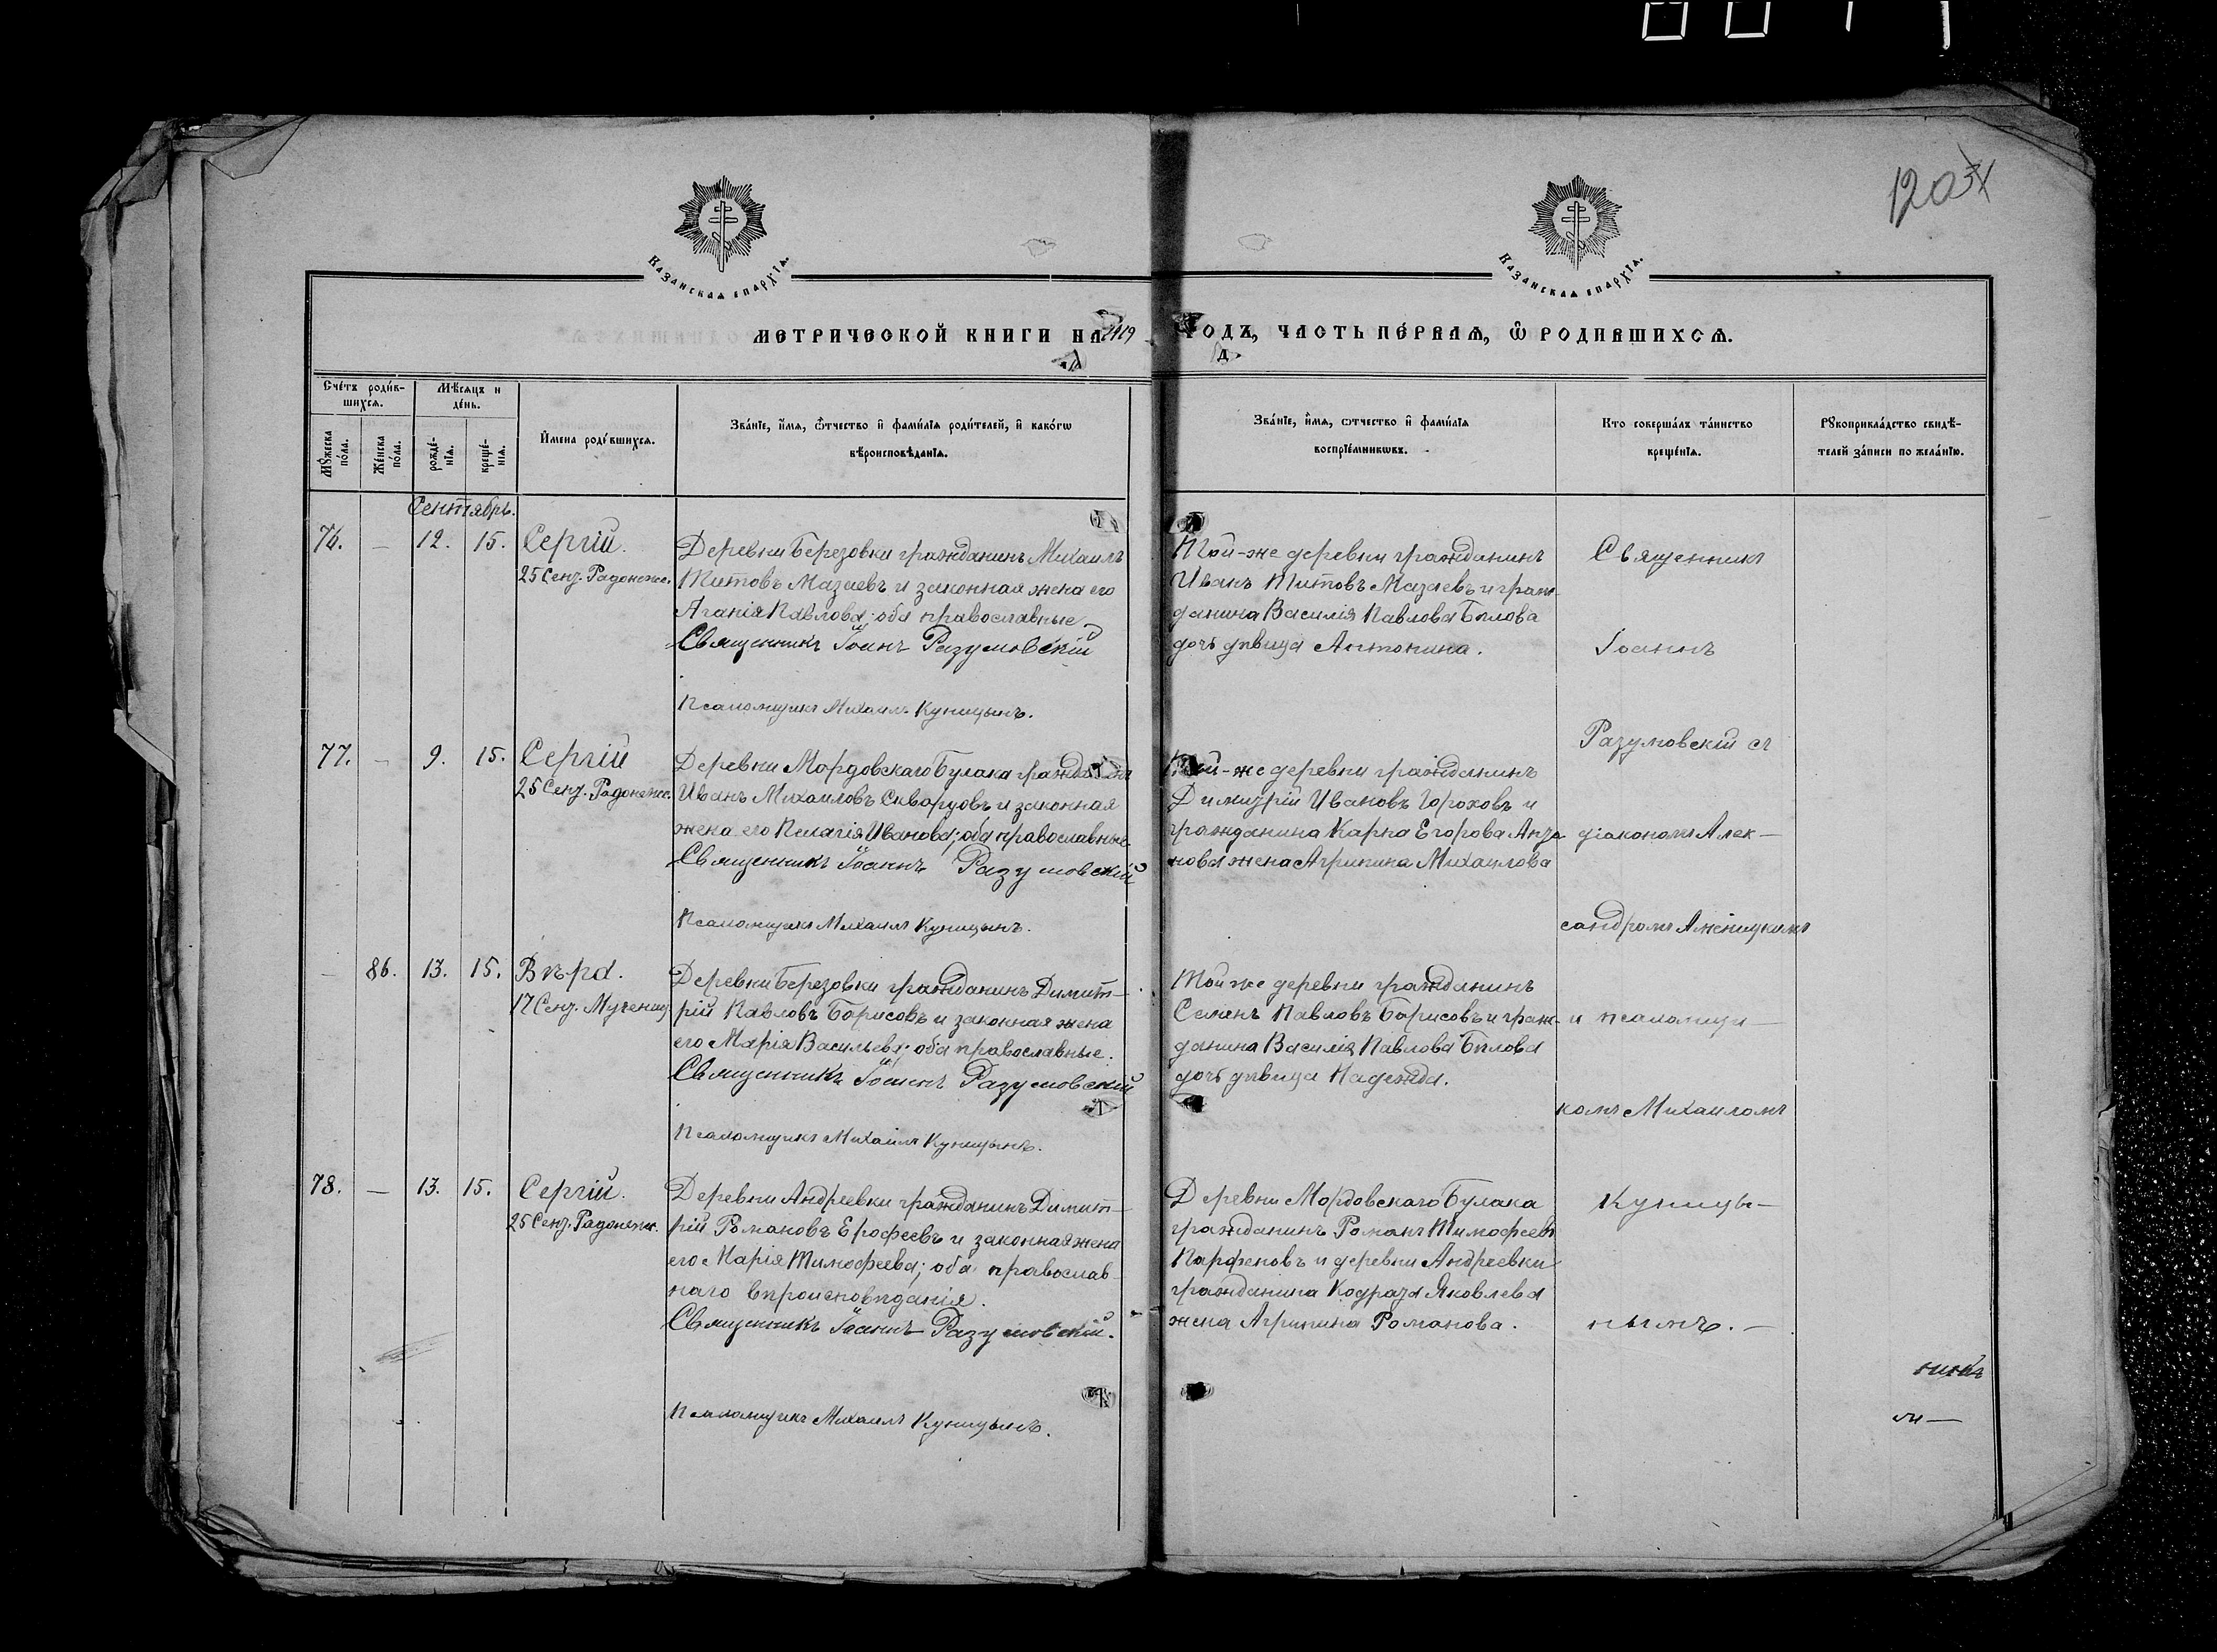 1203
Казанская епархія.
Казанская епархія.
Метрической книги на 1919 годъ, часть пе́рвая, ѡ родившихся.
Сче́тъ роди́вшихся.
Му́жеска по́ла.
Же́нска по́ла.
Мѣ́сяцъ и де́нь.
рожде́нія.
креще́нія.
И҆мена роди́вшихся.
Зва́ніе, и҆́мя, ѻ҆́тчество и҆ фами́лія роди́телей, и҆ како́гѡ
вѣроисповѣ́данія.
Зва́ніе, и҆́мя, ѻ҆тчество и҆ фами́лія
воспріе́мниковъ.
Кто соверша́лъ та́инство
креще́нія.
Рꙋкоприкла́дство свидѣ́-
телей за́писи по жела́нію.
Сентябрь.
76. — 12. 15. Сергій.
25 Сент. Радонеж.
Деревни Березовки гражданинъ Михаилъ
Титовъ Мазаевъ и законная жена его
Агапія Павлова; оба православные
Священникъ Іоаннъ Разумовскій
Псаломщикъ Михаилъ Куницынъ.
Той-же деревни гражданинъ
Иванъ Титовъ Мазаевъ и граж-
данина Василія Павлова Бѣлова
дочь дѣвица Антонина.
77. — 9. 15. Сергій
25 Сент. Радонеж.
Деревни Мордовскаго Булака гражданинъ
Иванъ Михаиловъ Скварцовъ и законная
жена его Пелагія Иванова; оба православные
Священникъ Іоаннъ Разумовскій
Псаломщикъ Михаилъ Куницынъ.
Той-же деревни гражданинъ
Димитрій Ивановъ Гороховъ и
гражданина Карпа Егорова Анто-
нова жена Агрипина Михаилова
— 86. 13. 15. Вѣра.
17 Сент. Мучениц.
Деревни Березовки гражданинъ Димит-
рій Павловъ Борисовъ и законная жена
его Марія Васильева; оба православные.
Священникъ Іоаннъ Разумовскій
Псаломщикъ Михаилъ Куницынъ.
Той же деревни гражданинъ
Семенъ Павловъ Борисовъ и граж-
данина Василія Павлова Бѣлова
дочь дѣвица Надежда.
78. — 13. 15. Сергій.
25 Сент. Радонеж.
Деревни Андреевки гражданинъ Димит-
рій Романовъ Ерофеевъ и законная жена
его Марія Тимофеева; оба православ-
наго вѣроисповѣданія.
Священникъ Іоаннъ Разумовскій.
Псаломщикъ Михаилъ Куницынъ.
Деревни Мордовскаго Булака
гражданинъ Романъ Тимофеевъ
Парфеновъ и деревни Андреевки
гражданина Кодрата Яковлева
жена Агрипина Романова.
Священникъ
Іоаннъ
Разумовскій съ
діакономъ Алек-
сандромъ
и псаломщи-
комъ Михаиломъ
Куницы-
нымъ. —